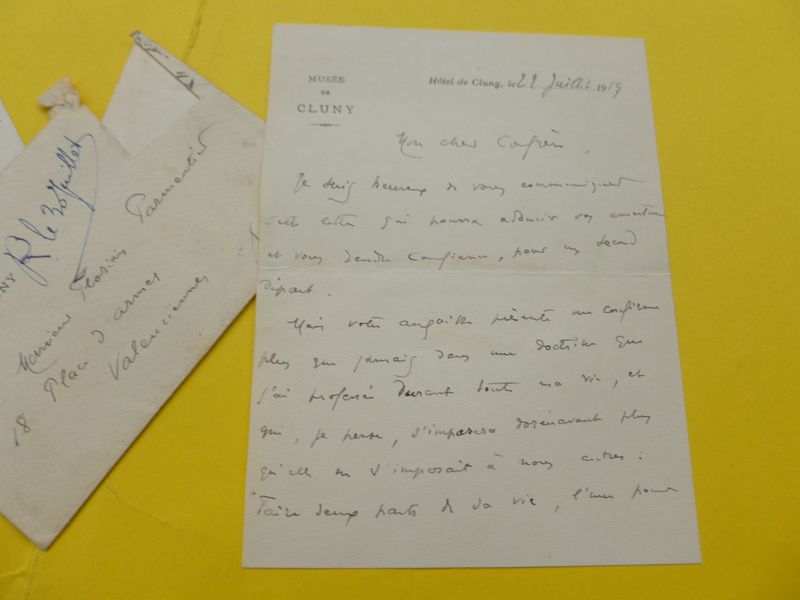 MUSÉE
DE
CLUNY
Hôtel de Cluny, le 22 Juillet 1919
Mon cher Confrère,
Je suis heureux de vous communiquer
cette lettre qui pourra adoucir vos
et vous rendre Confiance, pour un second
Départ.
Mais votre angoisse présente me confirme
plus que jamais dans une doctrine que
j'ai professée Durant toute ma vie, et
qui, je pense, s'imposera dorénavant plus
qu'elle ne s'imposait à nous autres :
Faire deux parts de sa vie, l'une pour
R. le 30 Juillet
NY
Monsieur Florian Parmentier
18 Place d'armes
Valenciennes